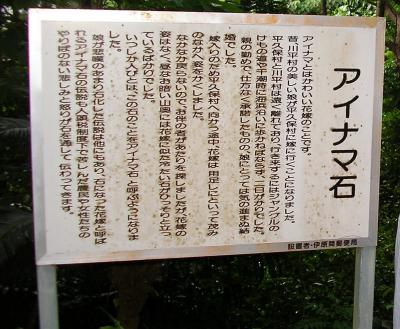 アイナマ石
アイナマとはかわいい花嫁のことです。
昔、川平村の美しい娘が平久保村に嫁に行くことになりました。
平久保村と川平村は遠く離れており、行き来するにはジャングルの
けもの道や干潮時に海浜沿いに歩かねばならず、一日がかりでした。
親の勧めで、仕方なく承諾したものの、娘にとっては気の進まぬ結
婚でした。
嫁入りのため平久保村へ向かう途中、花嫁は「用足し」にといって茂み
のなかへ姿をかくしました。
なかなか戻らないので、お伴の者があたりを探しましたが、花嫁の
姿はなく、昼なお暗い山道には花嫁に似た冷たい石がひっそりと立っ
ているばかりでした。
いつしか人びとは、この石のことを「アイナマ石」と呼ぶようになりま
した。
娘が悲嘆のあまり石化した伝説は他にもあり、石になった花嫁と呼ば
れるアイナマ石の伝説も人頭税制度下で苦しんだ農民や女性たちの
やりばのない悲しみと怒りが石を通して伝わってきます。
設置者・伊原間郵便局